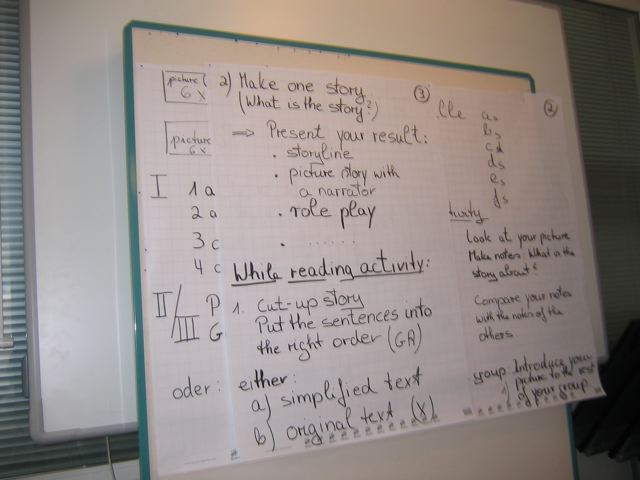 picture
6 x
picture
6x
I 1 a
2 a
3 c
4 c
II/III P
G
oder:
3
2) Make one story
(What is the story?)
⇒ Present your result:
· storyline
· picture story with
a narrator
· role play
· ......
While reading activity:
1. Cut-up story
Put the sentences into
the right order (GA)
either:
a) simplified text
b) original text (X)
2
a,
b,
d,
e,
f,
tivity
Look at your picture
Make notes. What is the
story about?
Compare your notes
with the notes of the
others.
group. Introduce your
picture to the rest
of your group